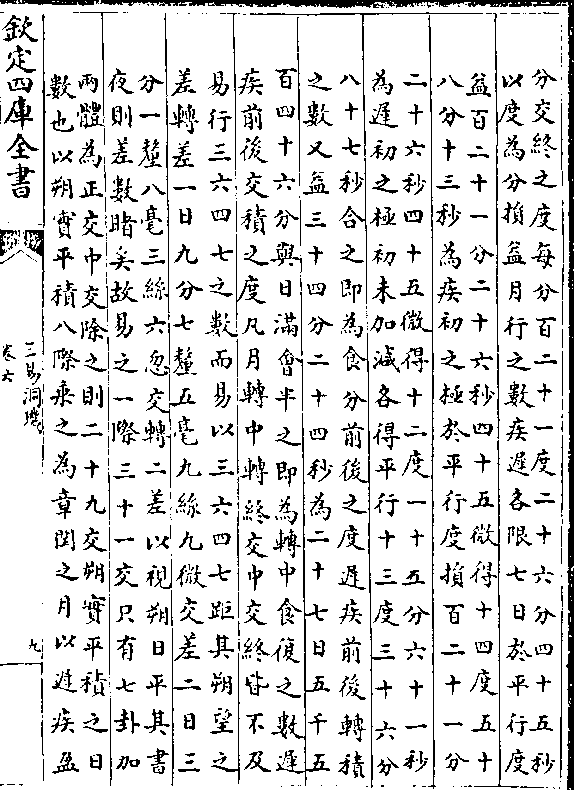 分交終之度每分百二十一度二十六分四十五秒
以度為分損益月行之數疾遲各限七日於平行度
益百二十一分二十六秒四十五微得十四度五十
八分十三秒為疾初之極於平行度損百二十一分
二十六秒四十五微得十二度一十五分六十一秒
為遲初之極初末加減各得平行十三度三十六分
八十七秒合之即為食分前後之度遲疾前後轉積
之數又益三十四分二十四秒為二十七日五千五
百四十六分與日滿會半之即為轉中食復之數遲
疾前後交積之度凡月轉中轉終交中交終皆不及
易行三六四七之數而易以三六四七距其朔望之
差轉差一日九分七釐五毫九絲九微交差二日三
分一釐八毫三絲六忽交轉二差以視朔日平其書
夜則差數睹矣故易之一際三十一交只有七卦加
兩體為正交中交除之則二十九交朔實平積之日
數也以朔實平積八際乘之為章閏之月以遲疾盈
欽定四庫全書
三易洞璣
卷六
九